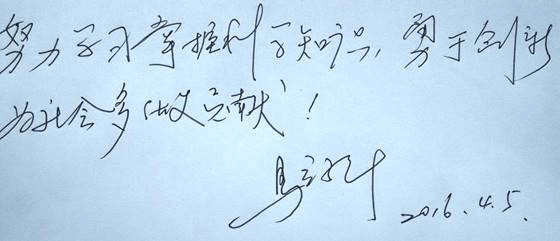 努力学习掌握科学知识，勇于创新
为社会多做贡献！
2016.4.5.